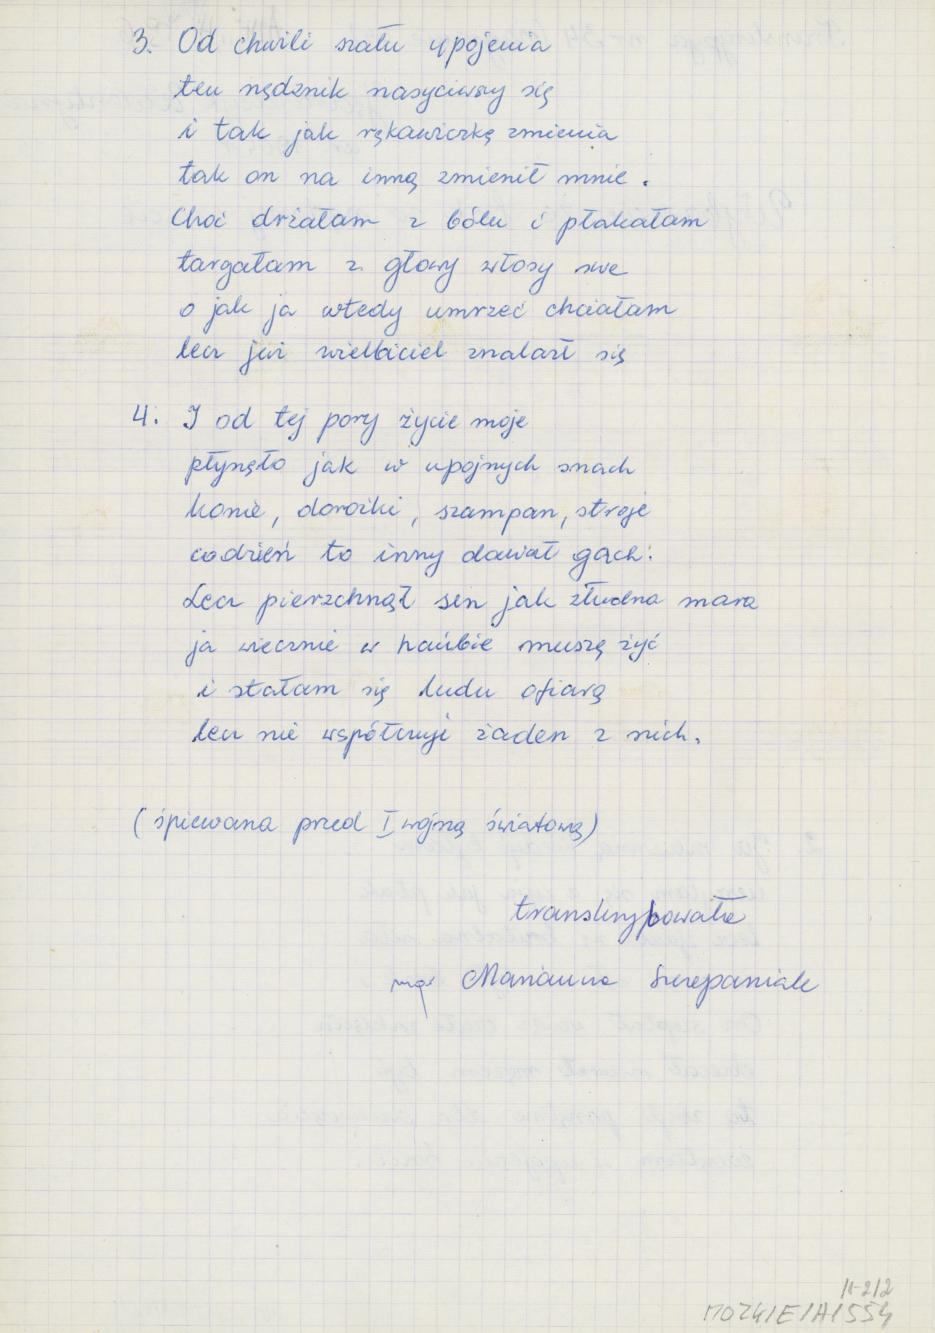 3. Od chwili szału upojenia
ten nędznik nasyciwszy się
i tak jak rękawiczkę zmienia
tak on na inną zmienił mnie.
Choć drżałam z bólu i płakałam
targałam z głowy włosy swe
o jak ja wtedy umrzeć chciałam
lecz już wielbiciel znalazł się
4. I od tej pory życie moje
płynęło jak w upojnych snach
konie, dorożki, szampan, stroje
codzień to inny dawał gach.
Lecz pierzchnął sen jak złudna mara
ja wiecznie w hańbie muszę żyć
i stałam się ludu ofiarą
lecz nie współczuje żaden z nich.
(śpiewana przed I wojną światową)
transkrybowała
mgr Marianna Szczepaniak
11-212
MOZK/E/A1554